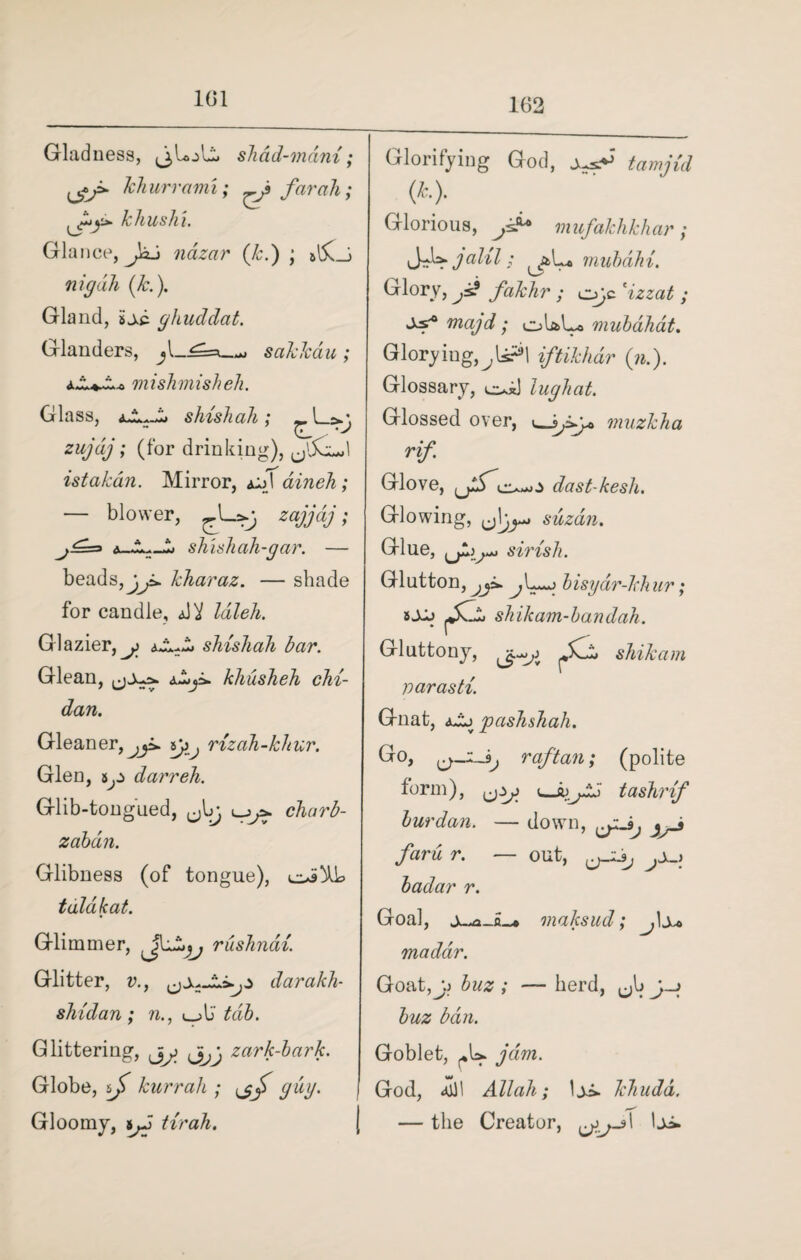 161
162
Gladness, شادمانی shád-mání;
خرمی khurramí; فرح farah;
خوشی khushí.
Glance, نظر názar (k.) ; نگاه
nigáh (k.).
Gland, غدة ghuddat.
Glanders, سکاو sakkáu;
مشمشه mishmisheh.
Glass, شیشه shíshah; زجاج
zujáj; (for drinking), استکان
istakán. Mirror, آینه áineh;
— blower, زجاج zajjáj;
شیشه گر shíshah-gar. —
beads, خرز kharaz. — shade
for candle, لاله láleh.
Glazier, شیشه بر shíshah bar.
Glean, خوشه چیدن khúsheh chí-
dan.
Gleaner, ریزه خور rízah-khur.
Glen, دره darreh.
Glib-tongued, چرب زبان charb-
zabán.
Glibness (of tongue), طلاقت
talákat.
Glimmer, روشنائی rúshnáí.
Glitter, v., درخشیدن darakh-
shídan; n., تاب táb.
Glittering, زرق برق zark-bark.
Globe, کره kurrah ; گوی gúy.
Gloomy, تیره tírah.
Glorifying God, تمجید tamjíd
(k.).
Glorious, مفخر mufakhkhar ;
جلیل jalíl ; مباهی mubáhí.
Glory, فخر fakhr ; عزت 'izzat ;
مجد majd ; مباهات mubáhát.
Glorying, افتخار iftikhár (n.).
Glossary, لغت lughat.
Glossed over, مزخرف muzkha
rif.
Glove, دست کش dast-kesh.
Glowing, سوزان súzán.
Glue, سریش sirísh.
Glutton, بسیار خور bisyár-khur ;
شکم بنده shikam-bandah.
Gluttony, شکم پرستی shikam
parastí.
Gnat, پشه pashshah.
Go, رفتن raftan; (polite
form), تشریف بردن tashríf
burdan. — down, فرو رفتن
farú r. — out, بدر رفتن
badar r.
Goal, مقصد maksud; مدار
madár.
Goat, بز buz ; — herd, بز بان
buz bán.
Goblet, جام jám.
God, الله Allah; خدا khudá.
— the Creator, خدا آفرین